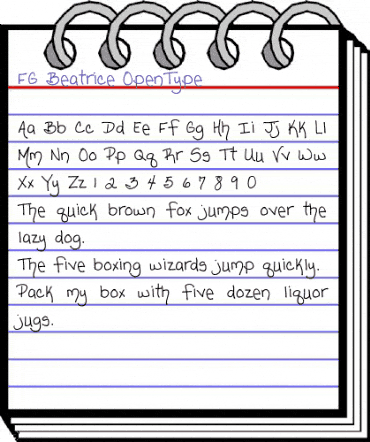 FG Beatrice OpenType
Aa Bb Cc Dd Ee Ff Gg Hh Ii Jj Kk Ll
Mm Nn Oo Pp Qq Rr Ss Tt Uu Vv Ww
Xx Yy Zz 1 2 3 4 5 6 7 8 9 0
The quick brown fox jumps over the
lazy dog.
The five boxing wizards jump quickly.
Pack my box with five dozen liquor
jugs.